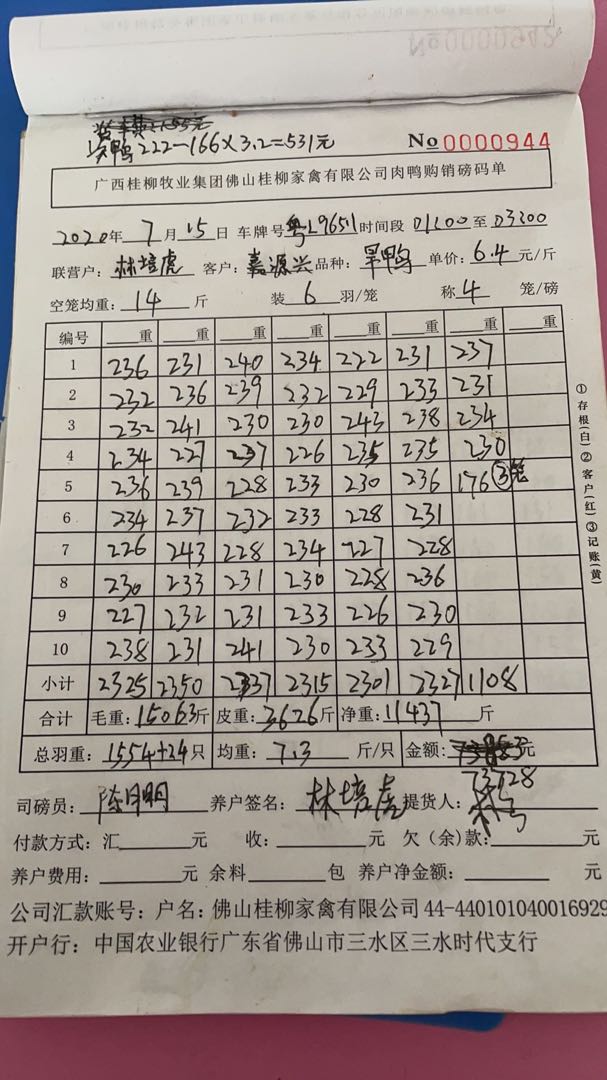 No 0000942
222-166×3.2=531元
No 0000944
广西桂柳牧业集团佛山桂柳家禽有限公司肉鸭购销磅码单
2020年 7 月 15 日 车牌号 粤L9651 时间段 01200 至 03200
联营户: 林培虎 客户: 嘉源兴 品种: 旱鸭 单价: 6.4 元/斤
空笼均重: 14 斤 装 6 羽/笼 称 4 笼/磅
编号 重 重 重 重 重 重 重 重
1 236 231 240 234 222 231 237
2 232 236 239 232 229 233 231
3 232 241 230 230 243 238 234
4 234 227 237 226 235 235 230
5 236 239 228 233 230 236 176 ③笼
6 234 237 232 233 228 231
7 226 243 228 234 227 228
8 230 233 231 230 228 236
9 227 232 231 233 226 230
10 238 231 241 230 233 229
小计 2325 2350 2337 2315 2301 2327 1108
合计 毛重: 15063斤 皮重: 3626斤 净重: 11437 斤
总羽重: 1554+24只 均重: 7.3 斤/只 金额: 元
73728
司磅员: 陈明明 养户签名: 林培虎 提货人:
付款方式: 汇 元 收: 元 欠(余)款: 元
养户费用: 元 余料 包 养户净金额: 元
公司汇款账号: 户名: 佛山桂柳家禽有限公司 44-440101040016929
开户行: 中国农业银行广东省佛山市三水区三水时代支行
①存根(白)②客户(红)③记账(黄)